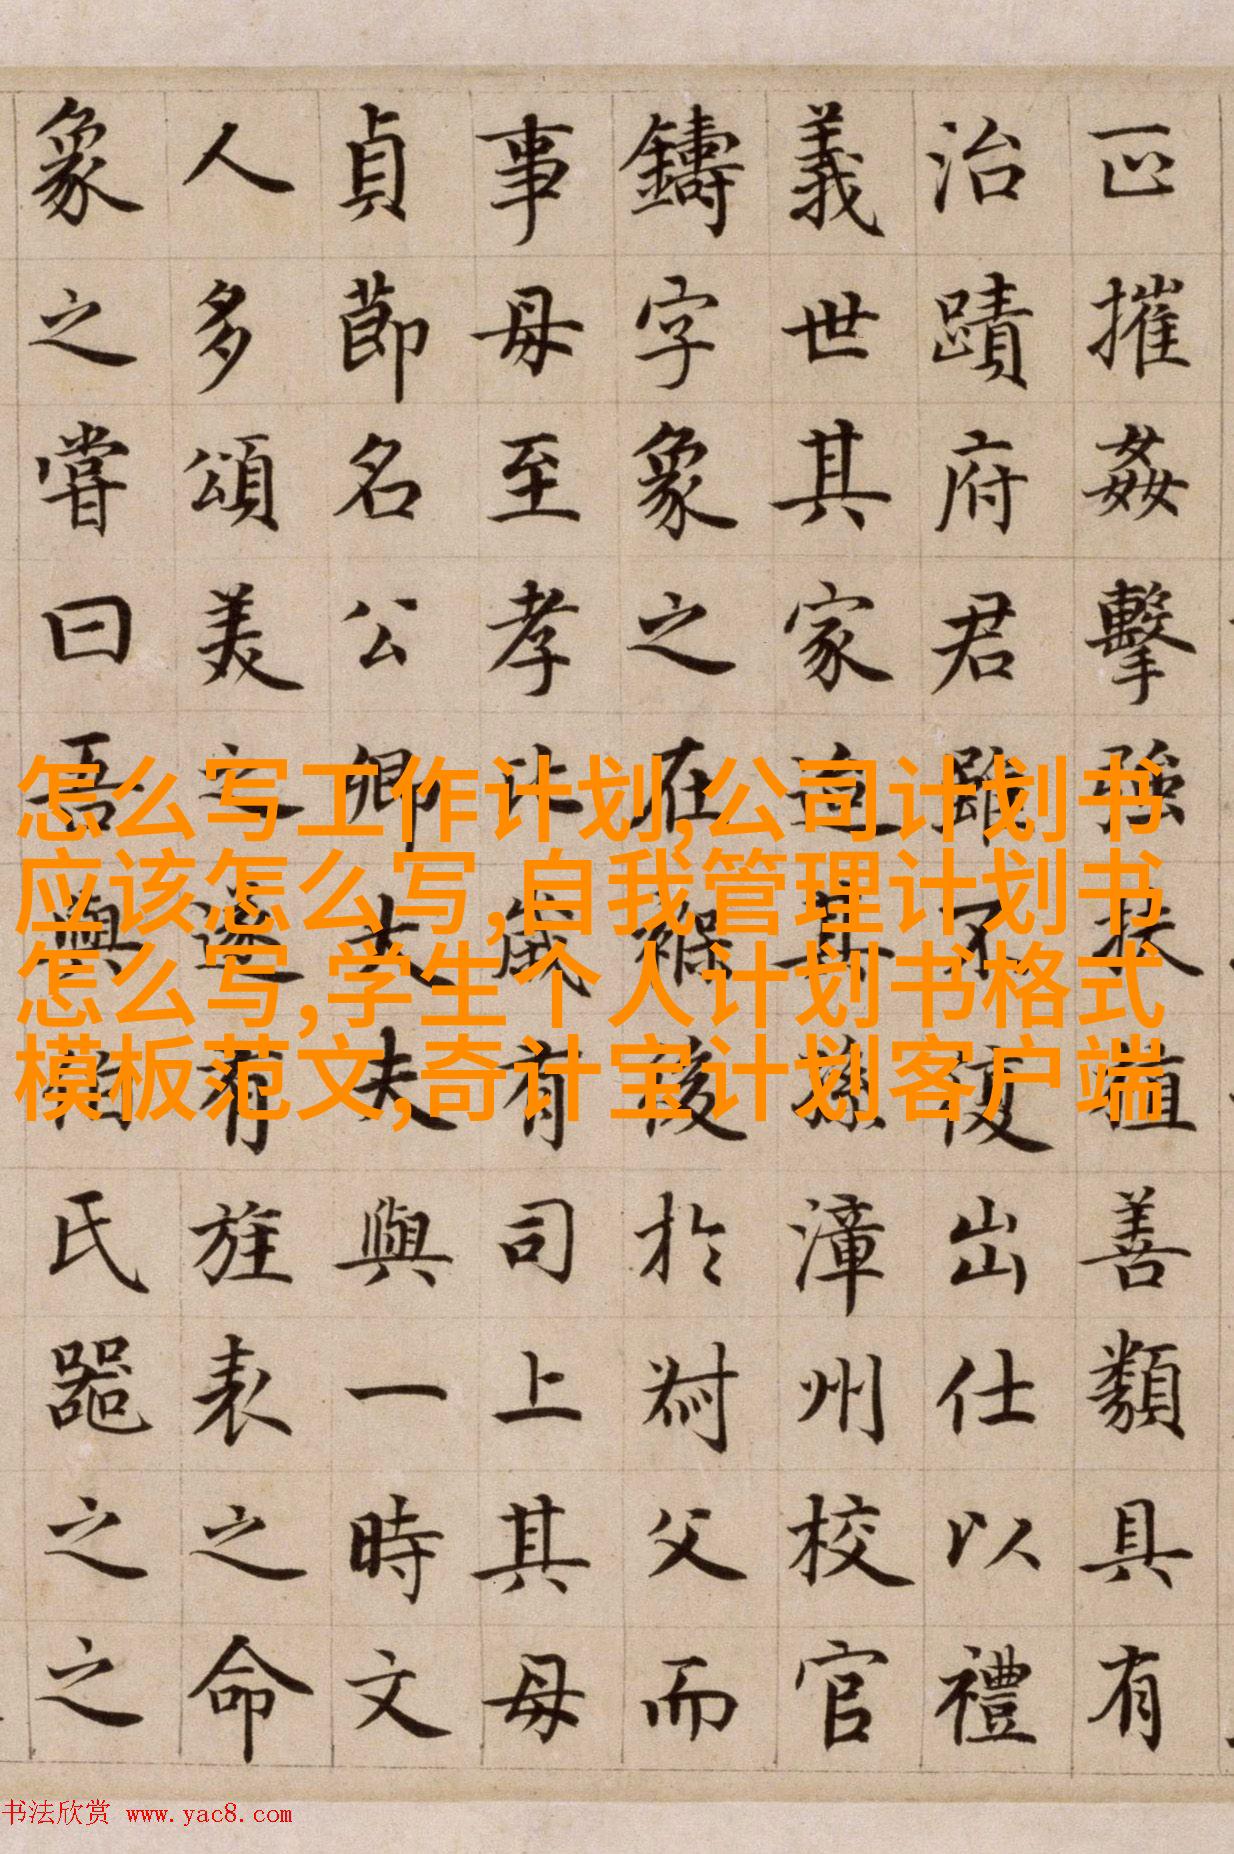 摧姦擊強扶植善類具有
治蹟府君雖不復出仕以禮
義世其家迨其孫漳州校官
鑄字象之在後於父而
事母至孝比歲有司上其母
貞節名公卿大夫與一時文
人多頌美之遂有旌表之命
象之嘗曰吾與伯氏器之之
怎么写工作计划,公司计划书
应该怎么写,自我管理计划书
怎么写,学生个人计划书格式
模板范文,奇计宝计划客户端
书法欣赏 www.yac8.com